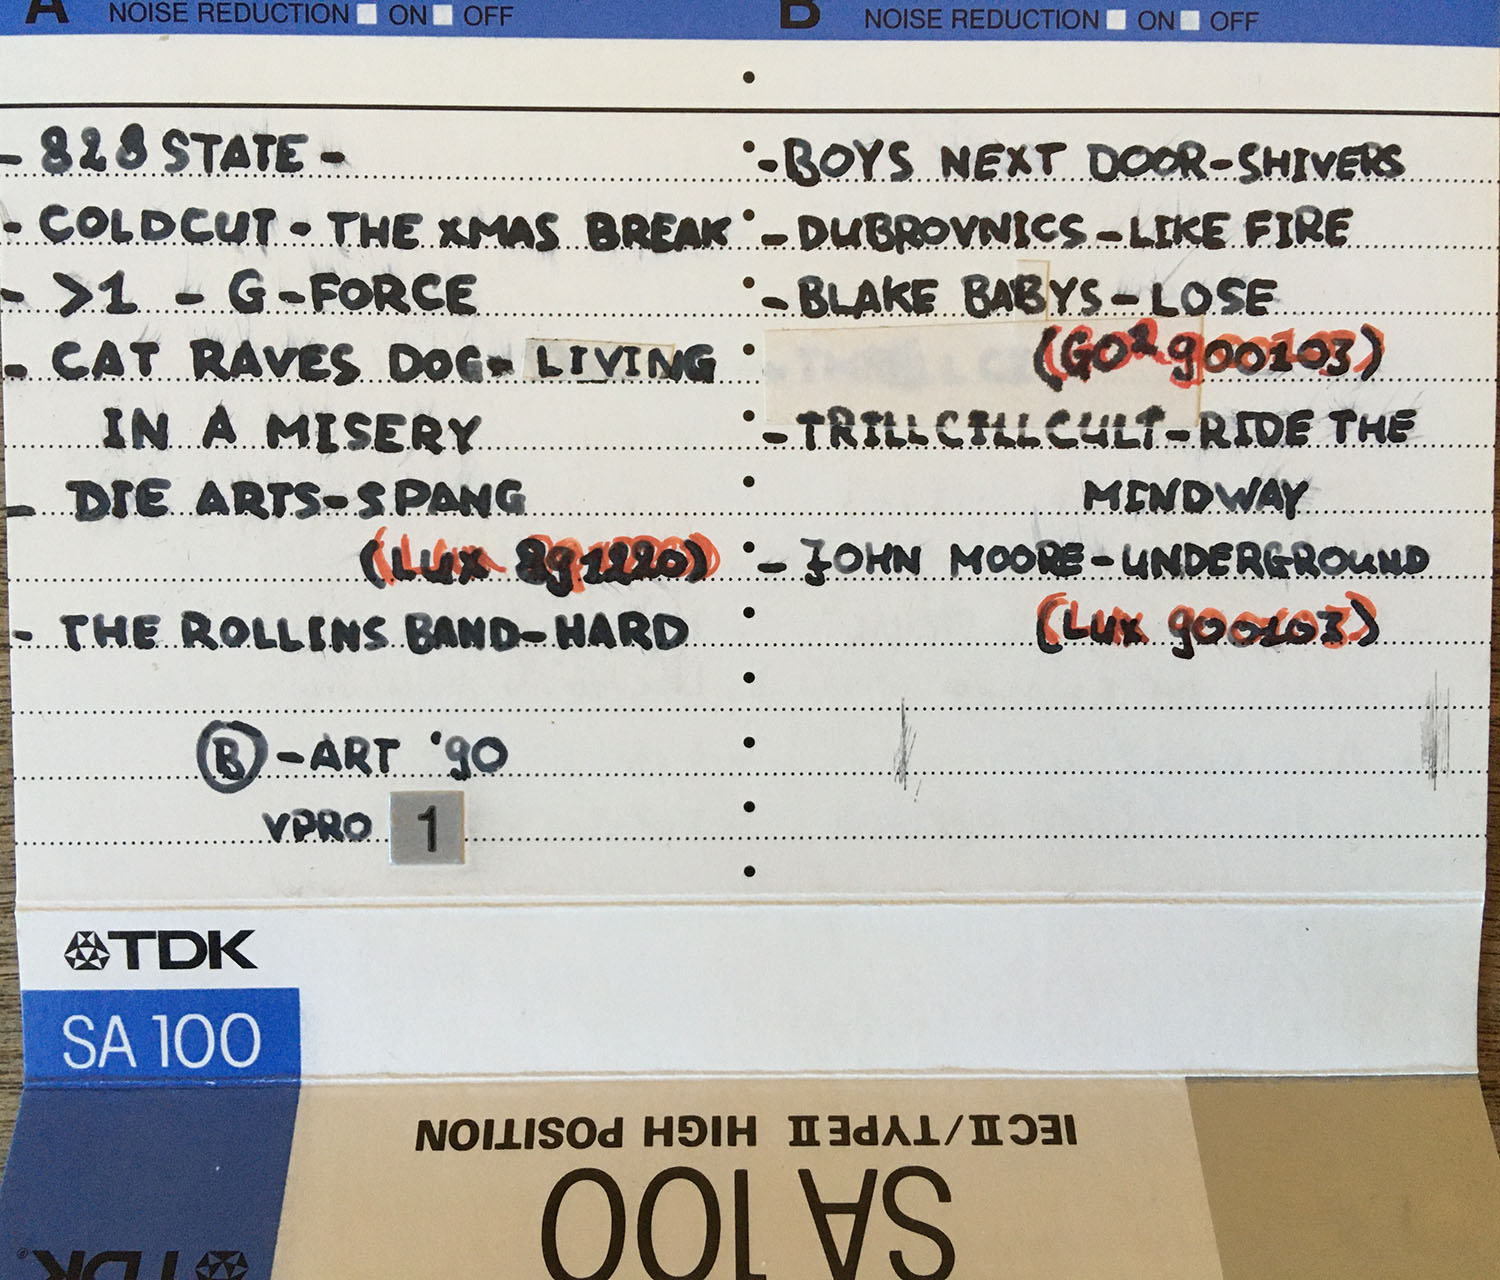 A NOISE REDUCTION ON OFF
B NOISE REDUCTION ON OFF
- 828 STATE -
- COLDCUT - THE XMAS BREAK
- >1 - G-FORCE
- CAT RAVES DOG - LIVING
IN A MISERY
- DIE ARTS - SPANG
(LUX 891220)
- THE ROLLINS BAND - HARD
B - ART '90
VPRO 1
- BOYS NEXT DOOR - SHIVERS
- DUBROVNICS - LIKE FIRE
- BLAKE BABYS - LOSE
(GO² 900103)
- TRILL CILL CULT - RIDE THE
MINDWAY
- JOHN MOORE - UNDERGROUND
(LUX 900103)
TDK
SA 100
IEC II/TYPE II HIGH POSITION
SA 100
TDK